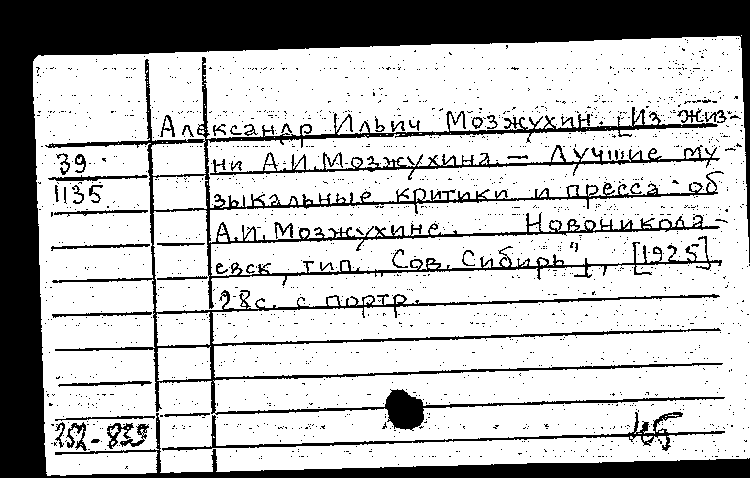 Александр Ильич Мозжухин. [Из жиз-
39 ни А.И.Мозжухина. — Лучшие му-
1135 зыкальные критики и пресса об
А.И.Мозжухине. Новоникола-
евск, тип. „Сов. Сибирь"], [1925].
28с. с портр.
252-839